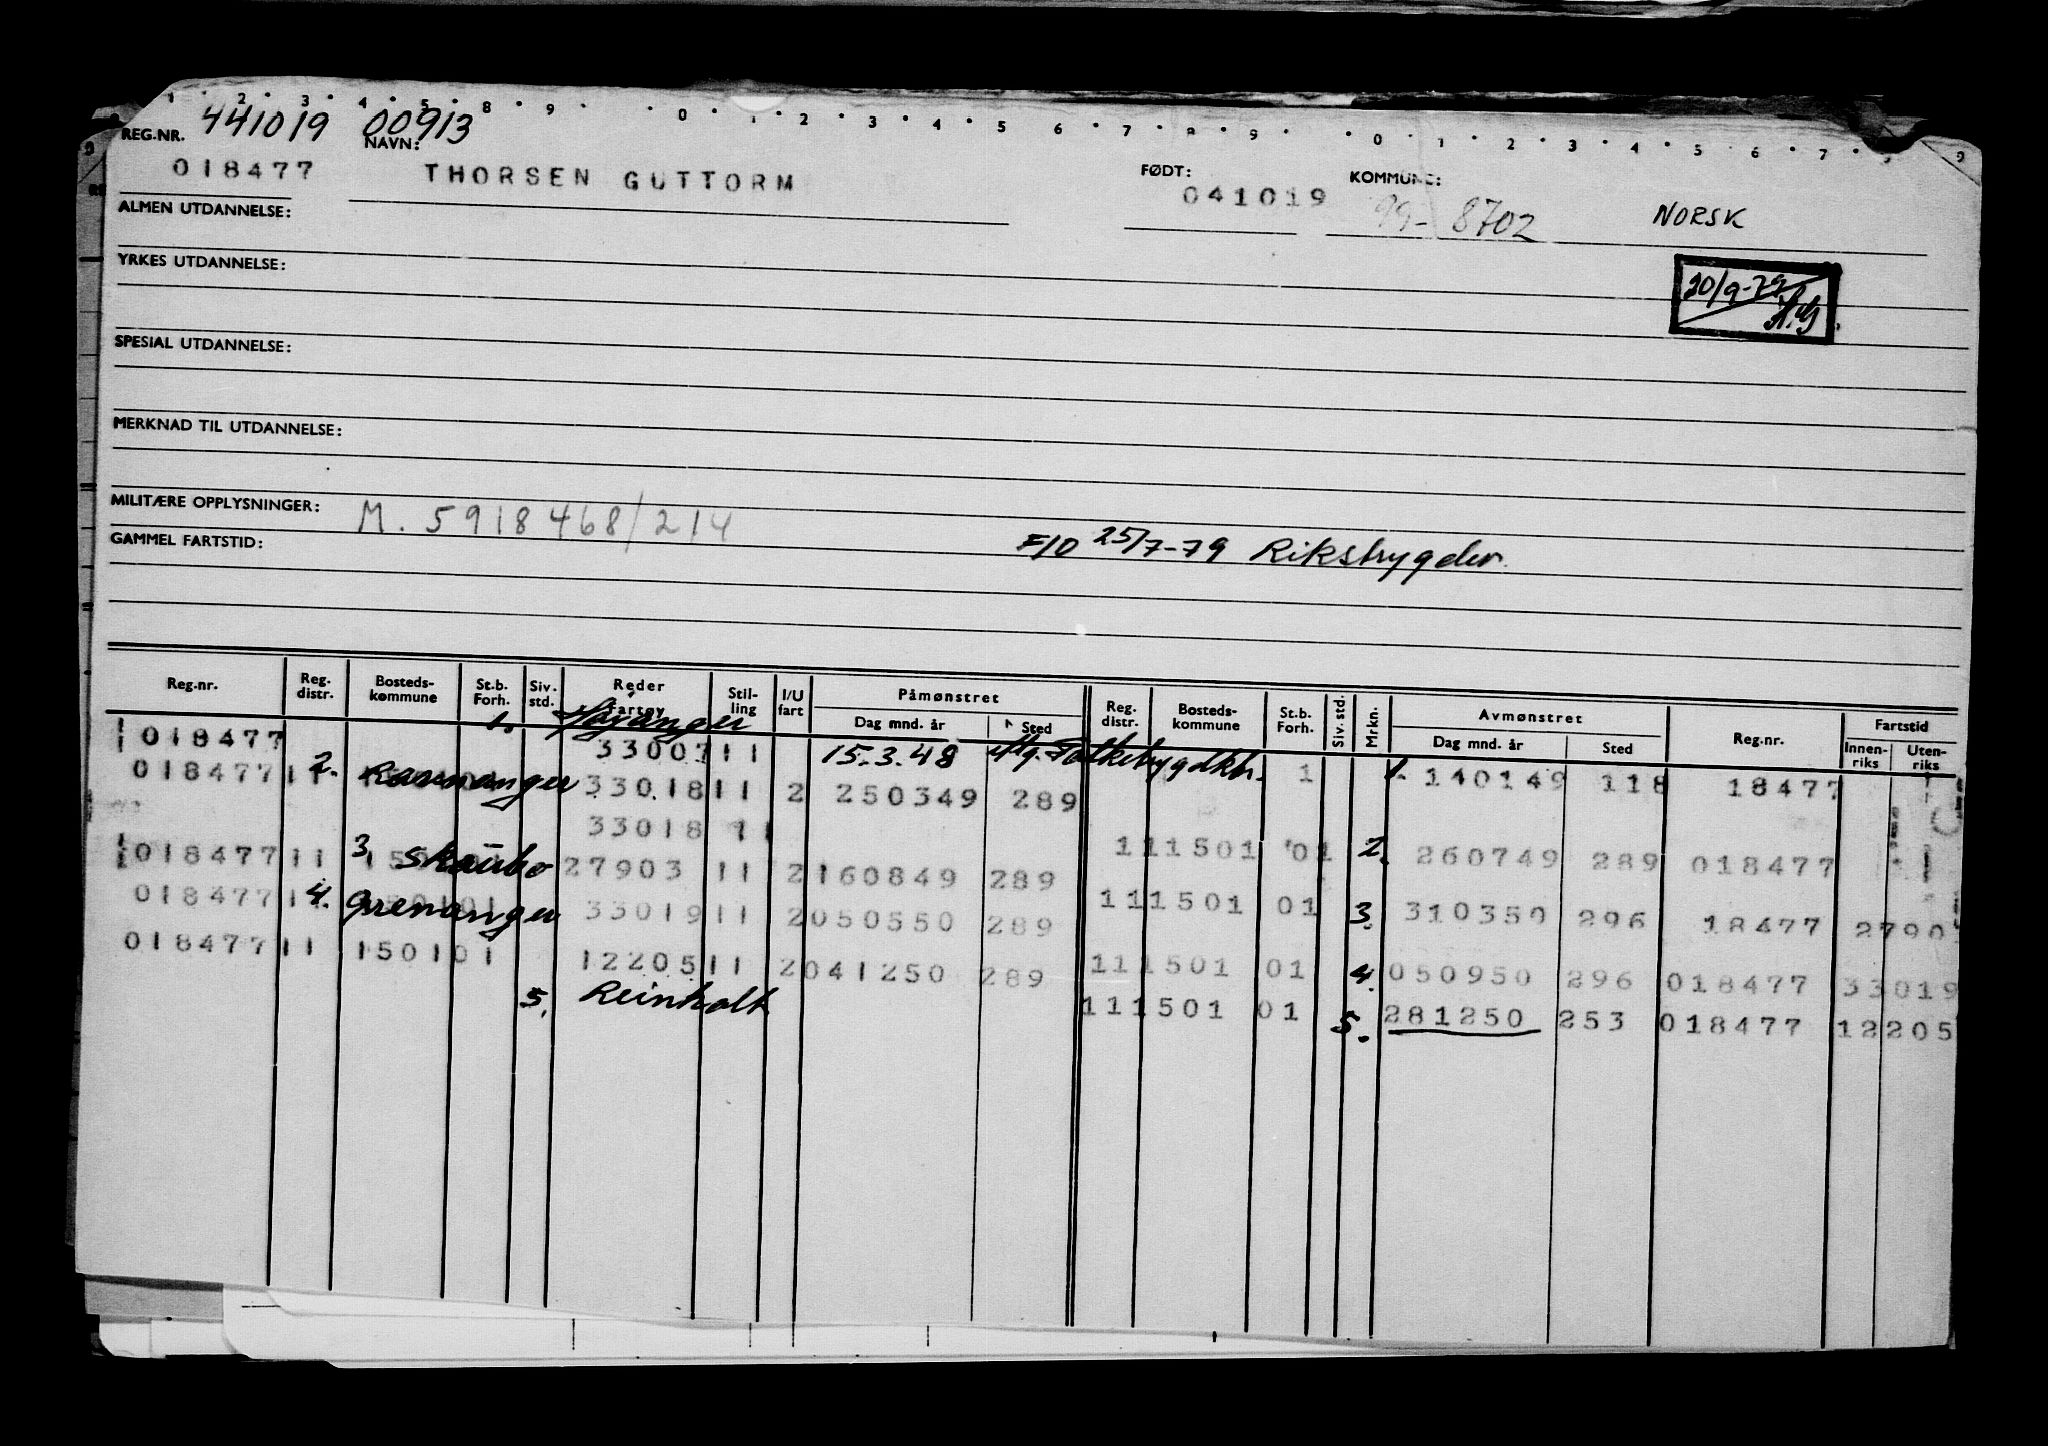 1 2 3 4 5 8 9 0 1 2 3 4 5 6 7 8 9 0 1 2 3 4 5 6 7 8 9
REG.NR. 441019 00913
NAVN: FØDT: KOMMUNE:
018477 THORSEN GUTTORM 041019 99-8702 NORSK
ALMEN UTDANNELSE:
YRKES UTDANNELSE:
20/9-79
SPESIAL UTDANNELSE:
MERKNAD TIL UTDANNELSE:
MILITÆRE OPPLYSNINGER: M. 5918468/214
GAMMEL FARTSTID: F/O 25/7-79 Rikstrygden
Reg.nr. Reg. distr. Bosteds-kommune St.b. Forh. Siv. std. Reder Fartøy Stil-ling I/U fart Påmønstret Dag mnd. år Sted Reg. distr. Bosteds-kommune St.b. Forh. Siv. std. Mrkn. Avmønstret Dag mnd. år Sted Reg.nr. Fartstid Innen-riks Uten-riks
1. Høyanger
018477 33007 11 15.3.48 1 1. 140149 118 18477
018477 11 2. Ravnanger 33018 11 2 250349 289
33018 11 111501 01 2. 260749 289 018477
018477 11 3. Skaubo 27903 11 2 160849 289
018477 11 4. Grenanger 33019 11 2 050550 289 111501 01 3. 310350 296 18477 2790
018477 11 150101 12205 11 2 041250 289 111501 01 4. 050950 296 018477 33019
5. Reinholt 111501 01 5. 281250 253 018477 12205